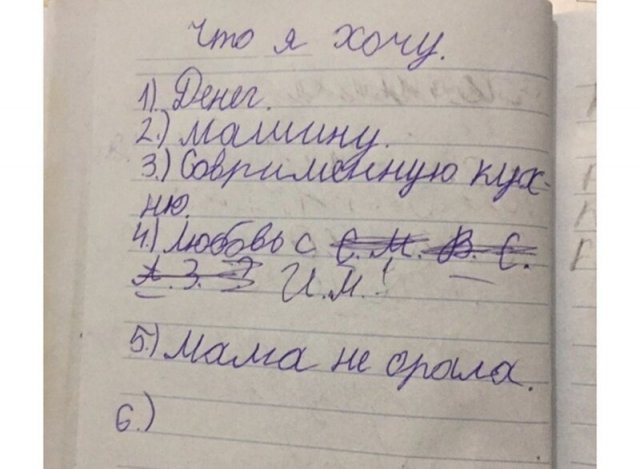 Что я хочу.
1) Денег.
2.) машину.
3.) Соврименную кух-
ню.
4.) любовь с С. М. В. С.
А. З. И.М.!
5.) мама не орала.
6.)